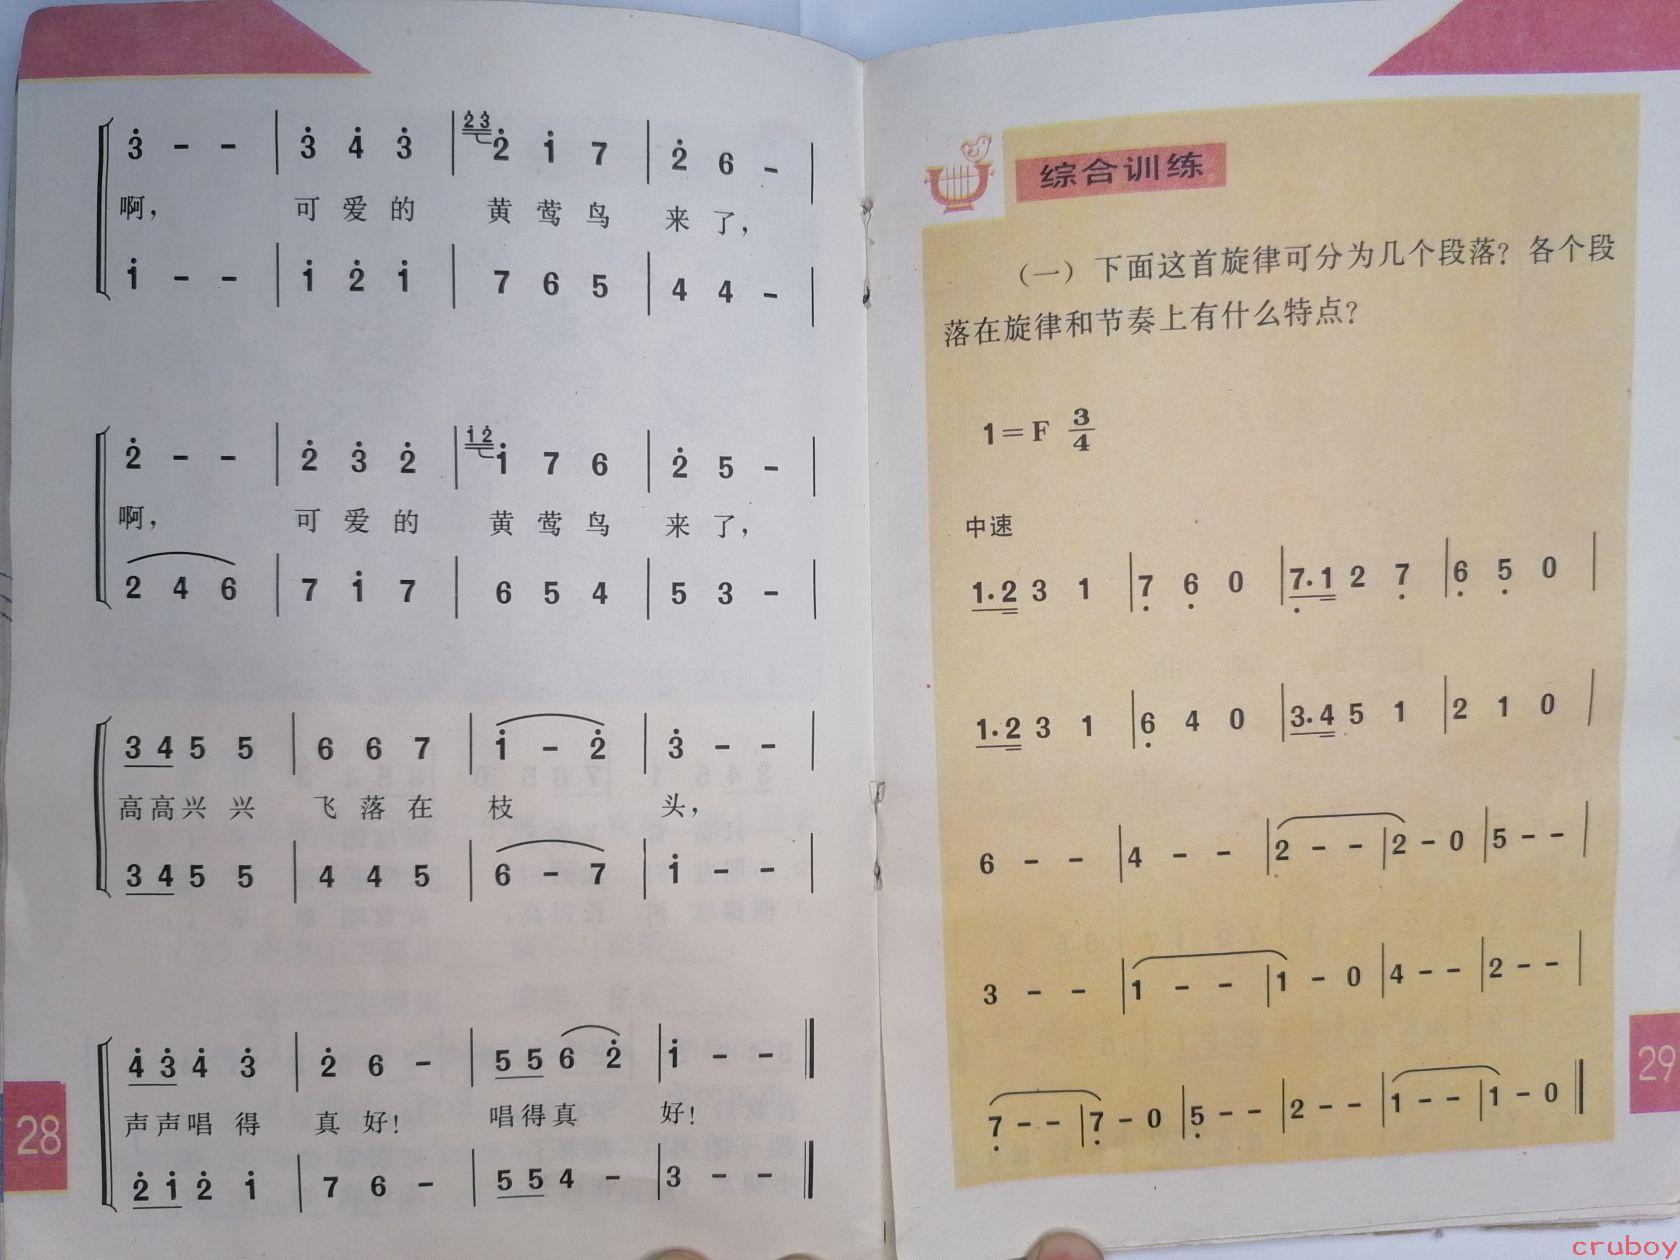 2̇3̇
3̇ - - | 3̇ 4̇ 3̇ | 2̇ 1̇ 7 | 2̇ 6 - |
啊， 可 爱 的 黄 莺 鸟 来 了，
1̇ - - | 1̇ 2̇ 1̇ | 7 6 5 | 4 4 - |
1̇2̇
2̇ - - | 2̇ 3̇ 2̇ | 1̇ 7 6 | 2̇ 5 - |
啊， 可 爱 的 黄 莺 鸟 来 了，
2 4 6 | 7 1̇ 7 | 6 5 4 | 5 3 - |
3 4 5 5 | 6 6 7 | 1̇ - 2̇ | 3̇ - - |
高高兴 兴 飞 落 在 枝 头，
3 4 5 5 | 4 4 5 | 6 - 7 | 1̇ - - |
4̇ 3̇ 4̇ 3̇ | 2̇ 6 - | 5 5 6 2̇ | 1̇ - - ‖
声声唱 得 真 好! 唱得真 好!
2̇ 1̇ 2̇ 1̇ | 7 6 - | 5 5 4 - | 3 - - ‖
28
综合训练
（一）下面这首旋律可分为几个段落？各个段
落在旋律和节奏上有什么特点？
1=F 3/4
中速
1·2 3 1 | 7̣ 6̣ 0 | 7̣·1 2 7̣ | 6̣ 5̣ 0 |
1·2 3 1 | 6̣ 4 0 | 3·4 5 1 | 2 1 0 |
6 - - | 4 - - | 2 - - | 2 - 0 | 5 - - |
3 - - | 1 - - | 1 - 0 | 4 - - | 2 - - |
7̣ - - | 7̣ - 0 | 5̣ - - | 2 - - | 1 - - | 1 - 0 ‖
29
cruboy